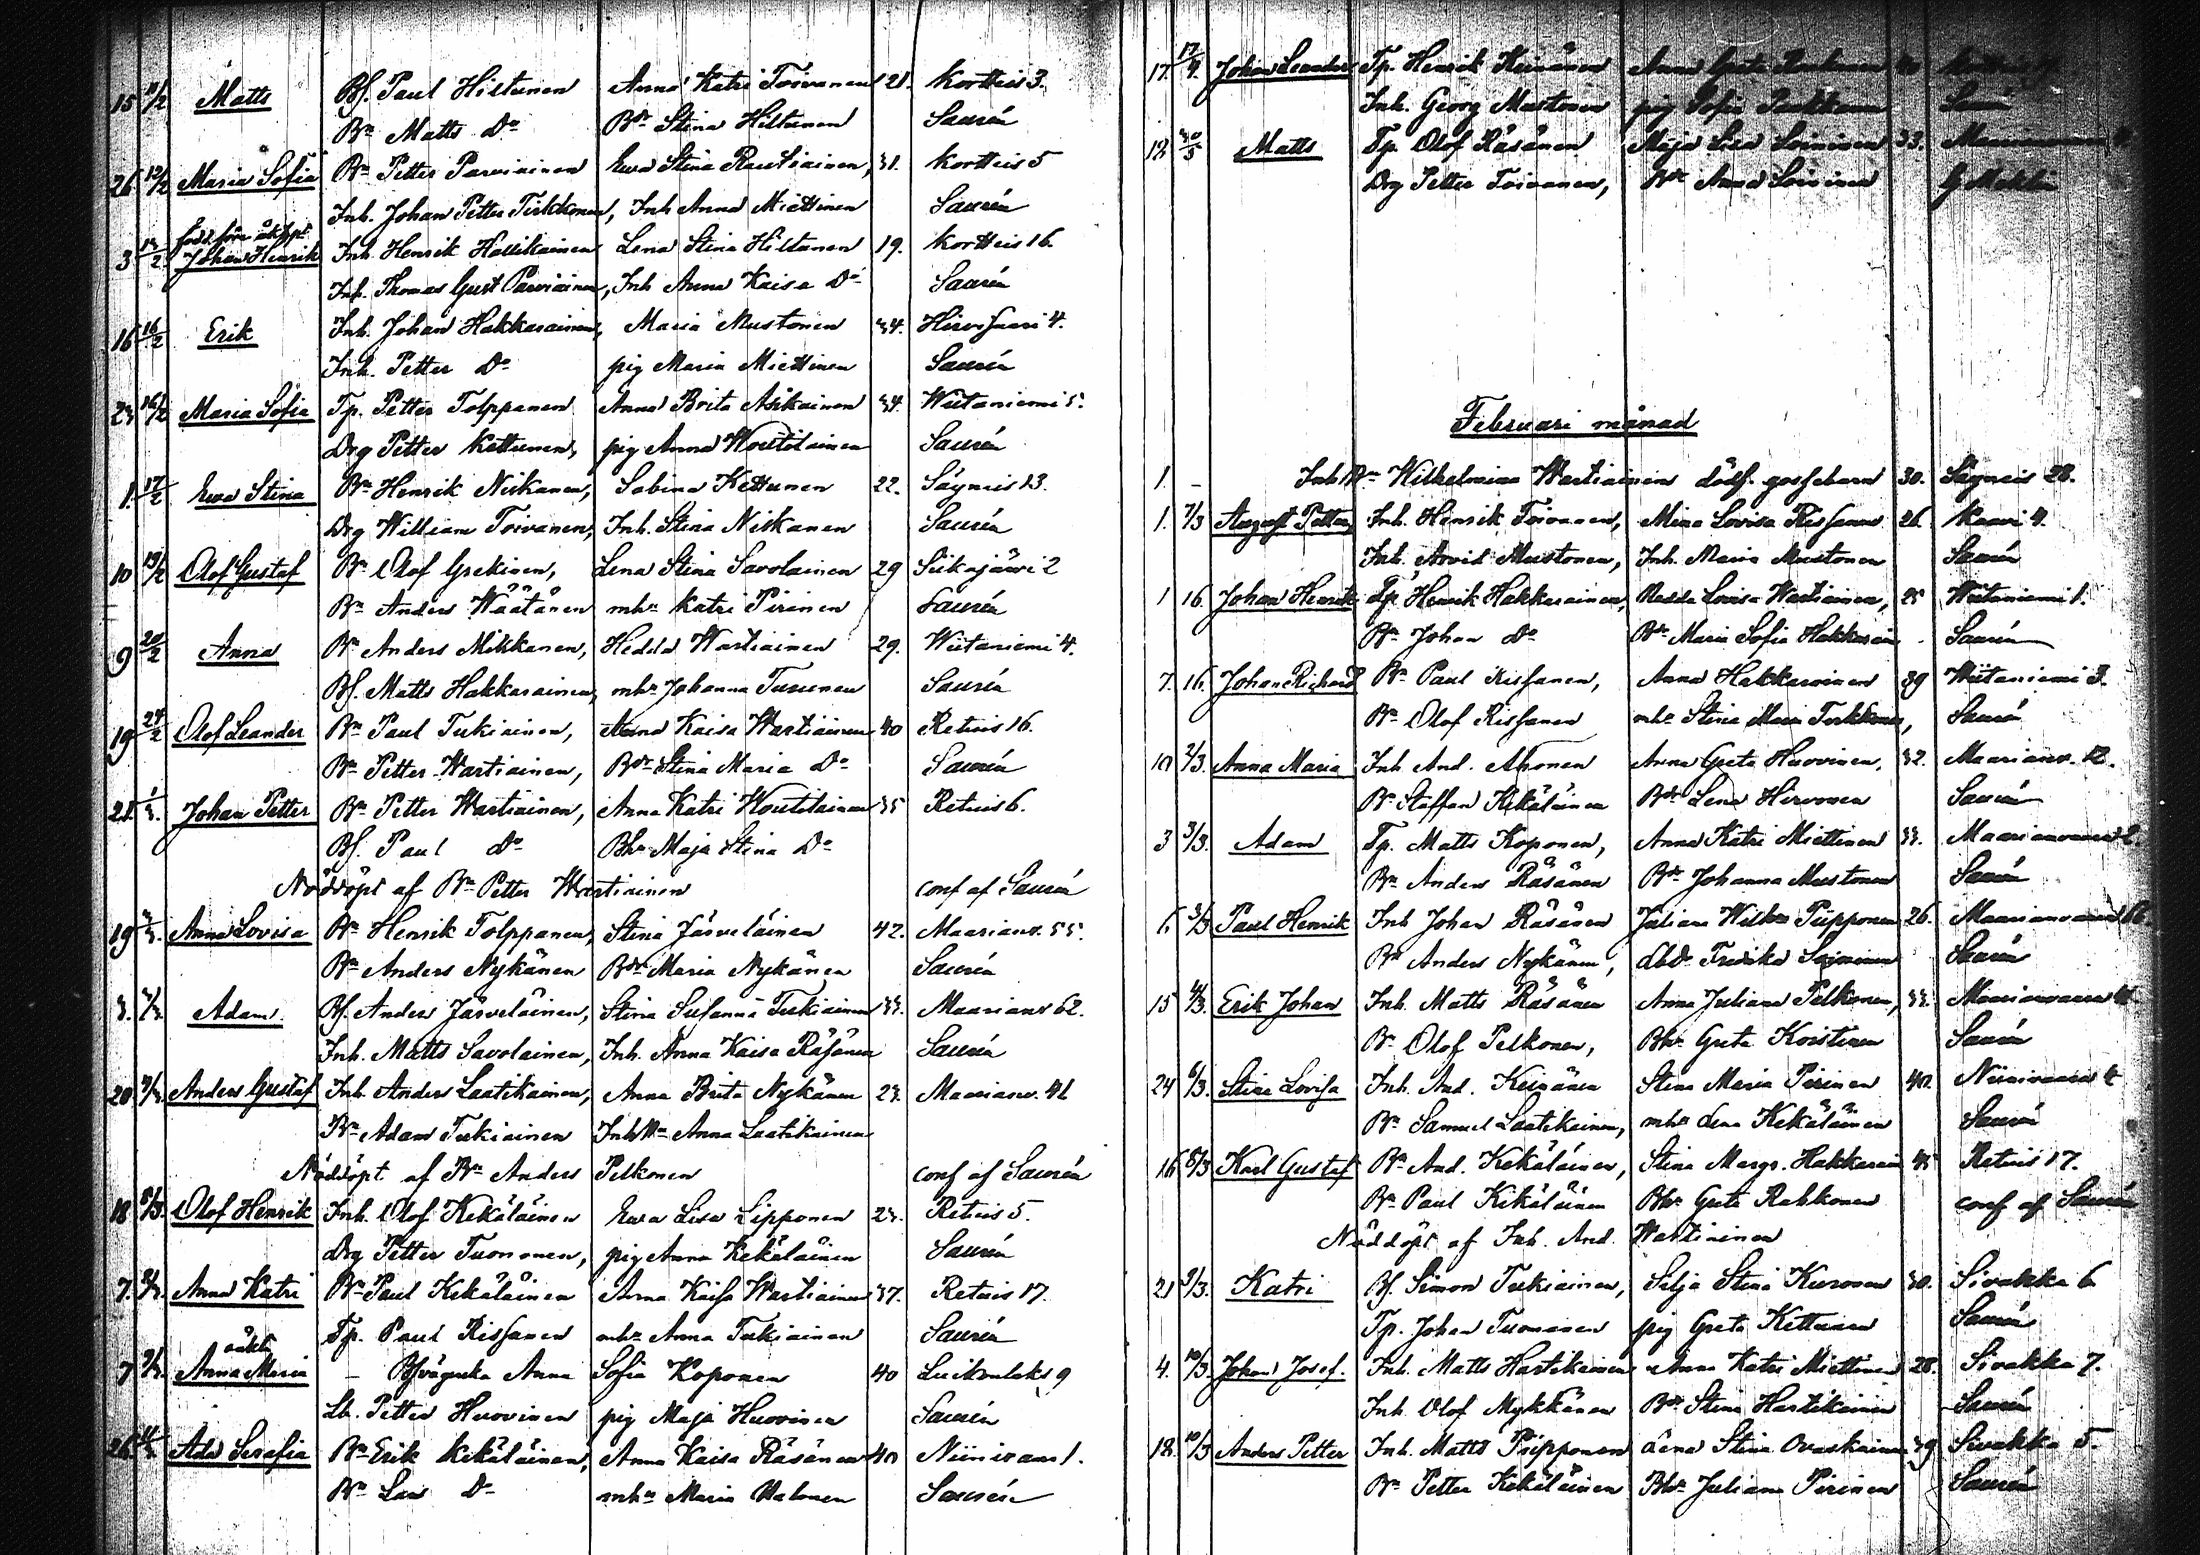 15 10/2 Matts Bf. Paul Hiltunen Anna Katri Toivanen 21. Kortteis 3.
Bn Matts Do Bdr Stina Hiltunen Saurén
26 12/2 Maria Sofia Bn Petter Parviainen Ewa Stina Rautiainen, 31. Kortteis 5
Inh. Johan Petter Tirkkonen, Inh Anna Miettinen Saurén
född före äktsp.
3 14/2 Johan Henrik Inh. Henrik Hallikainen Lena Stina Hiltunen 19. Kortteis 16.
Inh. Thomas Gust Parviainen, Inh Anna Kaisa Do Saurén
16 16/2 Erik Inh. Johan Hakkarainen, Maria Mustonen 34. Hirvisaari 4.
Inh. Petter Do pig Maria Miettinen Saurén
23 16/2 Maria Sofia Tp. Petter Tolppanen Anna Brita Asikainen 34. Wiitaniemi 5.
Drg Petter Kettunen, pig Anna Woutilainen Saurén
1. 17/2 Ewa Stina Bn Henrik Niskanen, Sabina Kettunen 22. Säyneis 13.
Drg William Toivanen, Inh. Stina Niskanen Saurén
10 19/2 Olof Gustaf Bn Olof Grekinen, Lena Stina Savolainen 29 Siikajärvi 2
Bn Anders Wäätänen mhr Katri Pirinen Saurén
9 20/2 Anna Bn Anders Mikkanen, Hedda Wartiainen 29. Wiitaniemi 4.
Bf. Matts Hakkarainen, mhr Johanna Turunen Saurén
19 24/2 Olof Leander Bn Paul Tukiainen, Anna Kaisa Wartiainen 40 Retuis 16.
Bn Petter Wartiainen, Bdr Stina Maria Do Saurén
21. 1/3. Johan Petter Bn Petter Wartiainen, Anna Katri Woutilainen 35 Retuis 6.
Bf. Paul Do Bhr Maja Stina Do
Nöddöpt af Bn Petter Wartiainen conf af Saurén
19 Anna Lovisa Bn Henrik Tolppanen, Stina Järveläinen 42. Maarianv. 55.
Bn Anders Nykänen Bdr Maria Nykänen Saurén
3. Adam. Bf. Anders Järveläinen, Stina Susanna Tukiainen 33. Maarianv 62.
Inh. Matts Savolainen, Inh. Anna Kaisa Räsänen Saurén
20 Anders Gustaf Inh. Anders Laatikainen, Anna Brita Nykänen 23. Maarianv. 41
Bn Adam Tukiainen Inh Anna Laatikainen
Nöddöpt af Bn Anders Pelkonen conf af Saurén
18 8/3. Olof Henrik Inh. Olof Kekäläinen Ewa Lisa Lipponen 23. Retuis 5.
Drg Petter Tuononen, pig Anna Kekäläinen Saurén
7. Anna Katri Bn Paul Kekäläinen Anna Kaisa Wartiainen 37. Retuis 17.
Tp. Paul Rissanen mhr Anna Tukiainen Saurén
oäkta
7 Anna Maria – Anna Sofia Koponen 40 Luikonlaks 9
Petter Huovinen pig Maja Huovinen Saurén
26 Ada Serafia Bn Erik Kekäläinen, Anna Kaisa Räsänen 40 Niinivaara 1.
Bn Lars Do mhr Maria Halonen Saurén
17. 17/4. Johan Leander Tp. Henrik Keinänen Anna Greta
Inh. Georg Mustonen pig Sofia
12 Matts Tp. Olof Räsänen Maja Lisa Loininen 33.
Drg Petter Toivanen, Bdr Anna Loininen
Februari månad
1. – Inh Wilhelmina Wartiainen dödf. gossebarn 30. Säyneis 28.
1. 7/3 August Petter Inh. Henrik Toivanen, Mina Lovisa Rissanen 26. Kaavi 4.
Inh. Arvid Mustonen, Inh. Maria Mustonen Saurén
1 16. Johan Henrik Tp. Henrik Hakkarainen, Hedda Lovisa Wartiainen, 25 Wiitaniemi 1.
Bn Johan Do Bdr Maria Sofia Hakkarain Saurén
7. 16. Johan Richard Bn Paul Rissanen, Anna Hakkarainen 39 Wiitaniemi 3.
Bn Olof Rissanen mhr Stina Maria Tirkkonen, Saurén
10 2/3. Anna Maria Inh. And. Ahonen Anna Greta Huovinen, 32. Maarianv. 12.
Bn Staffan Kekäläinen Bdr Lena Hirvonen Saurén
3 3/3. Adam Tp. Matts Koponen, Anna Katri Miettinen 33. Maarianvaara 2.
Bn Anders Räsänen Bdr Johanna Mustonen Saurén
6. 3/3 Paul Henrik Inh Johan Räsänen Juliana Wilhm Piipponen 26. Maarianvaara 66.
Bn Anders Nykänen, Fredrika Saurén
15 4/3. Erik Johan Inh. Matts Räsänen Anna Juliana Pelkonen, 33. Maarianvaara
Bn Olof Pelkonen, Bhr Greta Koistinen Saurén
24 6/3. Stina Lovisa Inh. And. Keinänen Stina Maria Pirinen 40. Niinivaara 4
Bn Samuel Laatikainen, mhr Lena Kekäläinen Saurén
16 8/3 Karl Gustaf Bn And. Kekäläinen, Stina Margr. Hakkarain 45 Retuis 17.
Bn Paul Kekäläinen Bhr Greta Rahkonen conf af Saurén
Nöddöpt af Inh. And. Wartiainen
21 9/3. Katri Bf. Simon Tukiainen, Silja Stina Kuronen 30. Sivakka 6.
Tp. Johan Tuomainen pig Greta Kettunen Saurén
4. 10/3. Johan Josef. Inh. Matts Hartikainen Anna Katri Miettinen 28. Sivakka 7.
Inh Olof Mykkänen Bdr Stina Hartikainen Saurén
18. 10/3 Anders Petter Inh. Matts Piipponen Lena Stina Ovaskainen 39. Sivakka 5.
Bn Petter Kekäläinen Bhr Juliana Pirinen Saurén